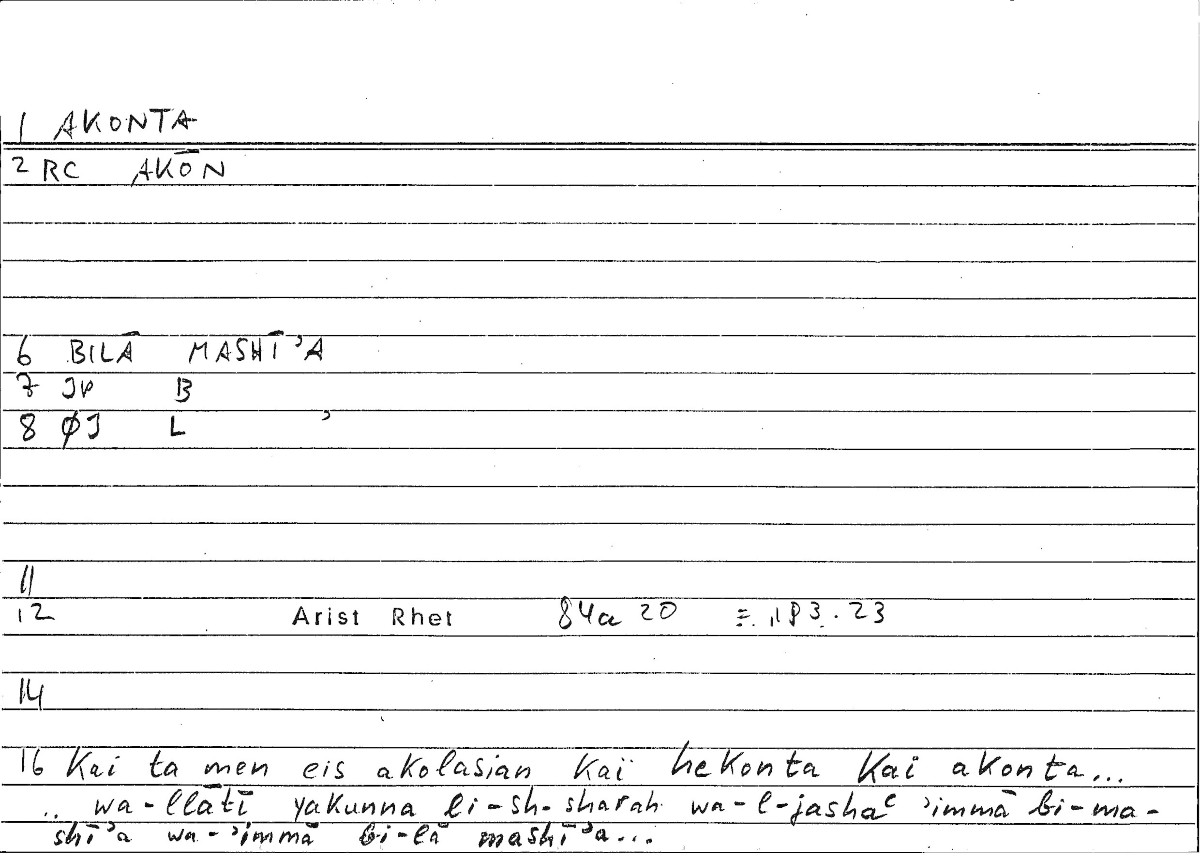 1 AKONTA
2 RC AKŌN
6 BILĀ MASHĪ'A
7 JP B
8 ØJ L '
11
12 Arist Rhet 84a 20 = 183.23
14
16 Kai ta men eis akolasian kai hekonta kai akonta...
.. wa-llātī yakunna li-sh-sharah wa-l-jashaᶜ 'immā bi-ma-
shī'a wa-'immā bi-lā mashī'a...